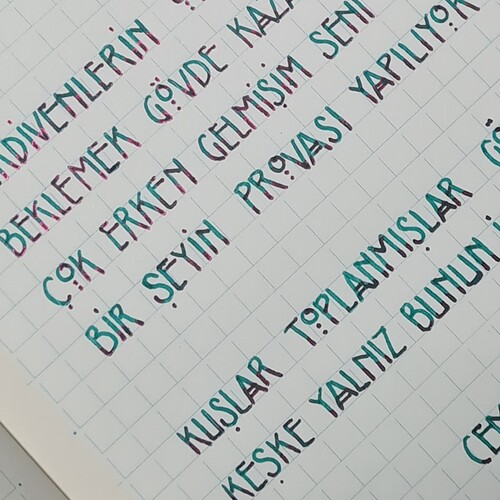 BEKLEMEK GÖVDE
ÇOK ERKEN GELMİŞİM SENİ
BİR ŞEYİN PROVASI YAPILIYOR
KUŞLAR TOPLANMIŞLAR
KEŞKE YALNIZ BUNUN